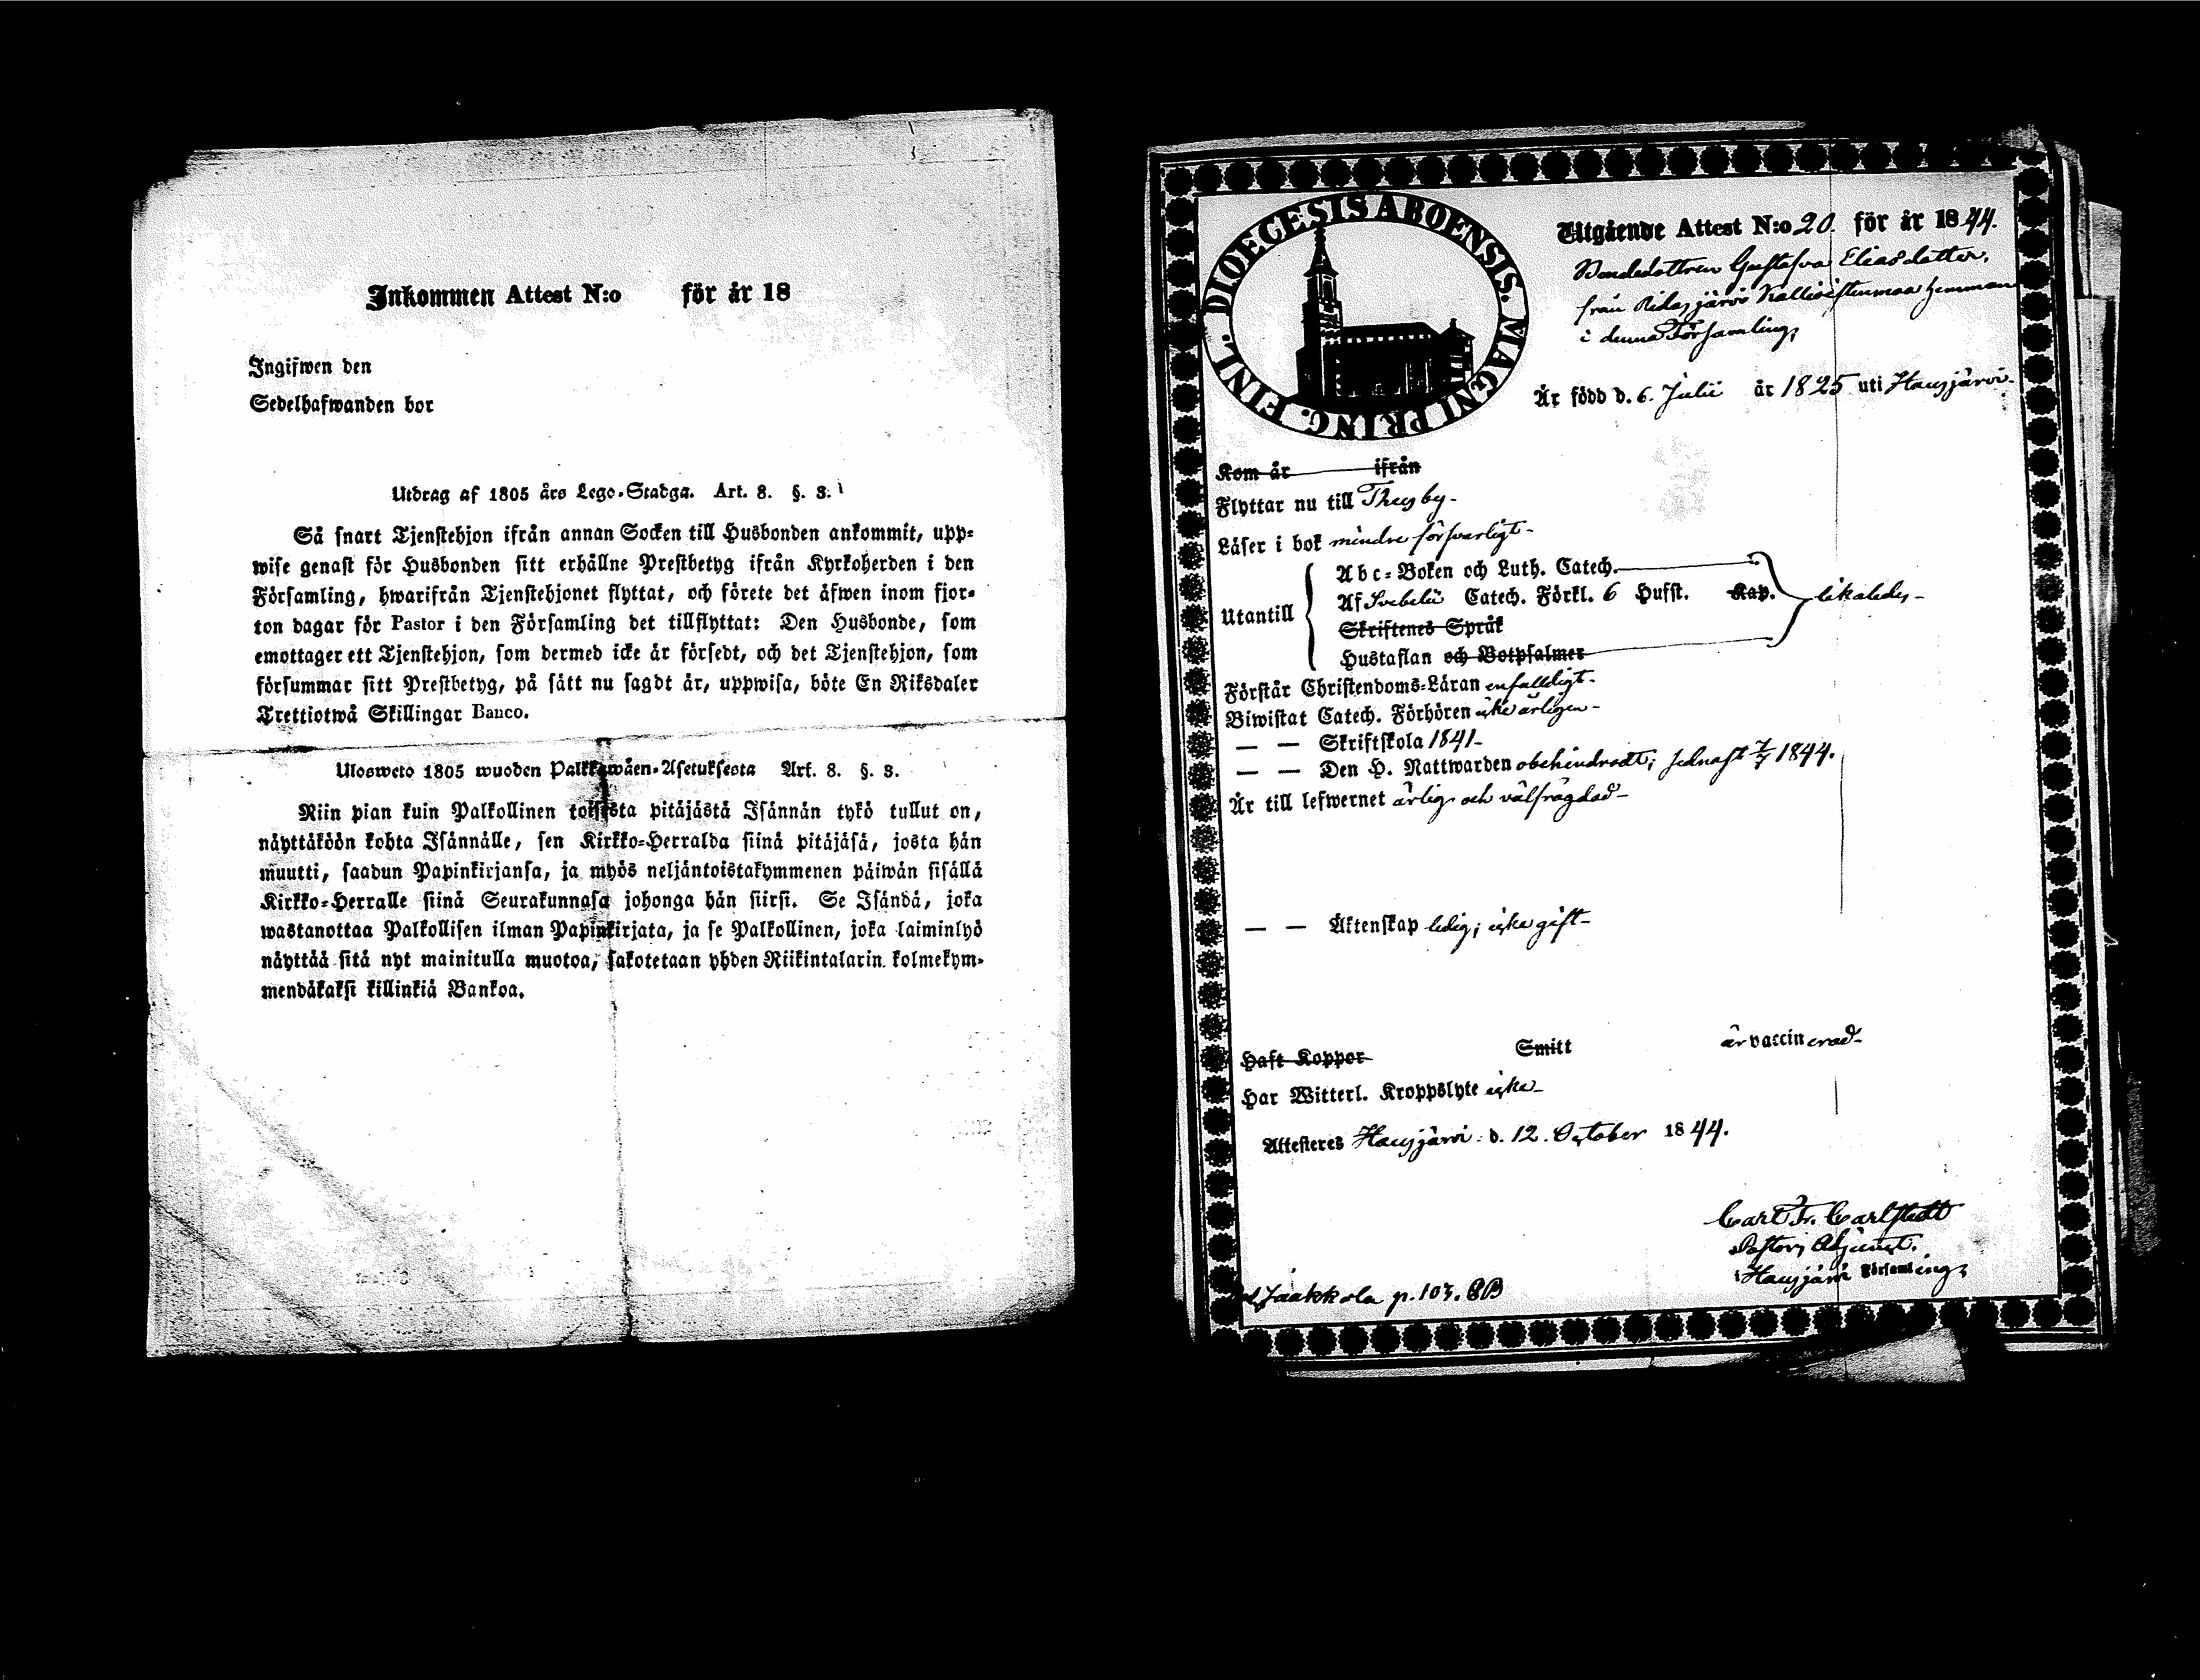 Inkommen Attest N:o för år 18
Ingifwen den
Sedelhafwanden bor
Utdrag af 1805 års Lego-Stadga. Art. 8. §. 3.
Så snart Tjenstehjon ifrån annan Socken till Husbonden ankommit, upp-
wise genast för Husbonden sitt erhållne Prestbetyg ifrån Kyrkoherden i den
Församling, hwarifrån Tjenstehjonet flyttat, och förete det äfwen inom fjor-
ton dagar för Pastor i den Församling det tillflyttat: Den Husbonde, som
emottager ett Tjenstehjon, som dermed icke är försedt, och det Tjenstehjon, som
försummar sitt Prestbetyg, på sätt nu sagdt är, uppwisa, böte En Riksdaler
Trettiotwå Skillingar Banco.
Ulosweto 1805 wuoden Palkkawäen-Asetuksesta Art. 8. §. 3.
Niin pian kuin Palkollinen toisesta pitäjästä Isännän tykö tullut on,
näyttäköön kohta Isännälle, sen Kirkko-Herralda siinä pitäjäsä, josta hän
muutti, saadun Papinkirjansa, ja myös neljäntoistakymmenen päiwän sisällä
Kirkko-Herralle siinä Seurakunnasa johonga hän siirsi. Se Isändä, joka
wastanottaa Palkollisen ilman Papinkirjata, ja se Palkollinen, joka laiminlyö
näyttää sitä nyt mainitulla muotoa, sakotetaan yhden Riikintalarin kolmekym-
mendäkaksi killinkiä Bankoa.
DIOECESIS ABOENSIS. MAGNI PRINC. FINL.
Utgående Attest N:o 20. för år 1844.
Bondedottren Gustafva Eliasdotter,
från Ridasjärvi hemman
i denna Församling,
Är född d. 6. Julii år 1825 uti Hausjärvi.
Kom år ifrån
Flyttar nu till Thusby-
Läser i bok mindre försvarligt-
Utantill
Abc-Boken och Luth. Catech.
Af Svebelii Catech. Förkl. 6 Hufst. Kap.
likaledes-
Skriftenes Språk
Hustaflan och Botpsalmer
Förstår Christendoms-Läran enfaldigt-
Biwistat Catech. Förhören icke årligen-
— — Skriftskola 1841-
— — Den H. Nattwarden obehindradt; sednast 7/7 1844.
Är till lefwernet ärlig och välfrägdad-
— — Äktenskap ledig; icke gift-
Haft Koppor Smitt är vaccinerad-
Har Witterl. Kroppslyte icke-
Attesteres Hausjärvi d. 12. October 1844.
Carl Fr. Carlstedt
Pastors Adjunct.
i Hausjärvi Församling
Jaakkola p. 103. CB